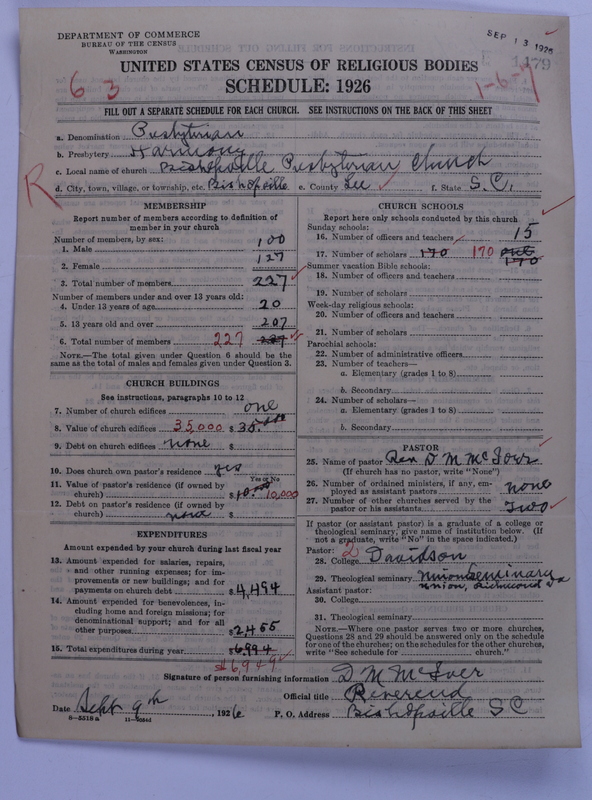 DEPARTMENT OF COMMERCE
BUREAU OF THE CENSUS
WASHINGTON
SEP 13 1926
1179
63
1-6-
UNITED STATES CENSUS OF RELIGIOUS BODIES
SCHEDULE: 1926
FILL OUT A SEPARATE SCHEDULE FOR EACH CHURCH. SEE INSTRUCTIONS ON THE BACK OF THIS SHEET
a. Denomination Presbyterian
b. Presbytery Harmony
c. Local name of church Bishopville Presbyterian Church
R
d. City, town, village, or township, etc. Bishopville e. County Lee f. State S.C.
MEMBERSHIP
Report number of members according to definition of
member in your church
Number of members, by sex:
1. Male 100
2. Female 127
3. Total number of members 227
Number of members under and over 13 years old:
4. Under 13 years of age 20
5. 13 years old and over 207
6. Total number of members 227 227
NOTE.—The total given under Question 6 should be
same as the total of males and females given under Question 3.
CHURCH BUILDINGS
See instructions, paragraphs 10 to 12
7. Number of church edifices one
8. Value of church edifices 35,000 $
9. Debt on church edifices none $
10. Does church own pastor's residence yes
Yes or No
11. Value of pastor's residence (if owned by
church) $ 10,000
12. Debt on pastor's residence (if owned by
church) none $
EXPENDITURES
Amount expended by your church during last fiscal year
13. Amount expended for salaries, repairs,
and other running expenses; for im-
provements or new buildings; and for
payments on church debt $4,494
14. Amount expended for benevolences, in-
cluding home and foreign missions; for
denominational support; and for all
other purposes $2,455
15. Total expenditures during year $6,994
$6,949
CHURCH SCHOOLS
Report here only schools conducted by this church
Sunday schools:
16. Number of officers and teachers 15
17. Number of scholars 170 170 170
Summer vacation Bible schools:
18. Number of officers and teachers
19. Number of scholars
Week-day religious schools:
20. Number of officers and teachers
21. Number of scholars
Parochial schools:
22. Number of administrative officers
23. Number of teachers—
a. Elementary (grades 1 to 8)
b. Secondary
24. Number of scholars—
a. Elementary (grades 1 to 8)
b. Secondary
PASTOR
25. Name of pastor Rev. D M McIver
(If church has no pastor, write "None")
26. Number of ordained ministers, if any, em-
ployed as assistant pastors none
27. Number of other churches served by the
pastor or his assistants Two
If pastor (or assistant pastor) is a graduate of a college or
theological seminary, give name of institution below. (If
not a graduate, write "No" in the space indicated.)
Pastor: 2
28. College Davidson
29. Theological seminary Union Seminary
Union, Richmond Va
Assistant pastor:
30. College
31. Theological seminary
NOTE.—Where one pastor serves two or more churches,
Questions 28 and 29 should be answered only on the schedule
for one of the churches; on the schedules for the other churches,
write "See schedule for church."
Signature of person furnishing information D M McIver
Official title Reverend
Date Sept 9th, 1926 P. O. Address Bishopville SC
8—5518a